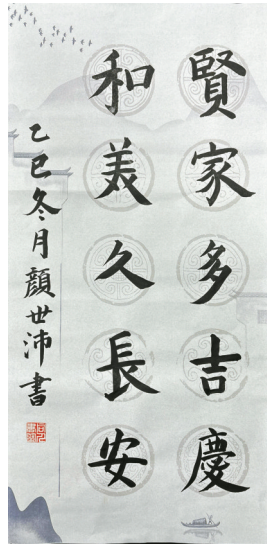 賢家多吉慶
和美久長安
乙巳冬月顔世沛書